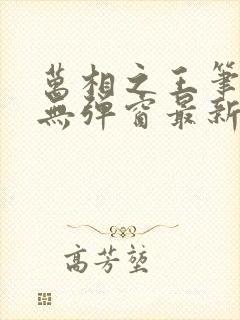 萬相之王筆
無彈窗最新
高芳堃